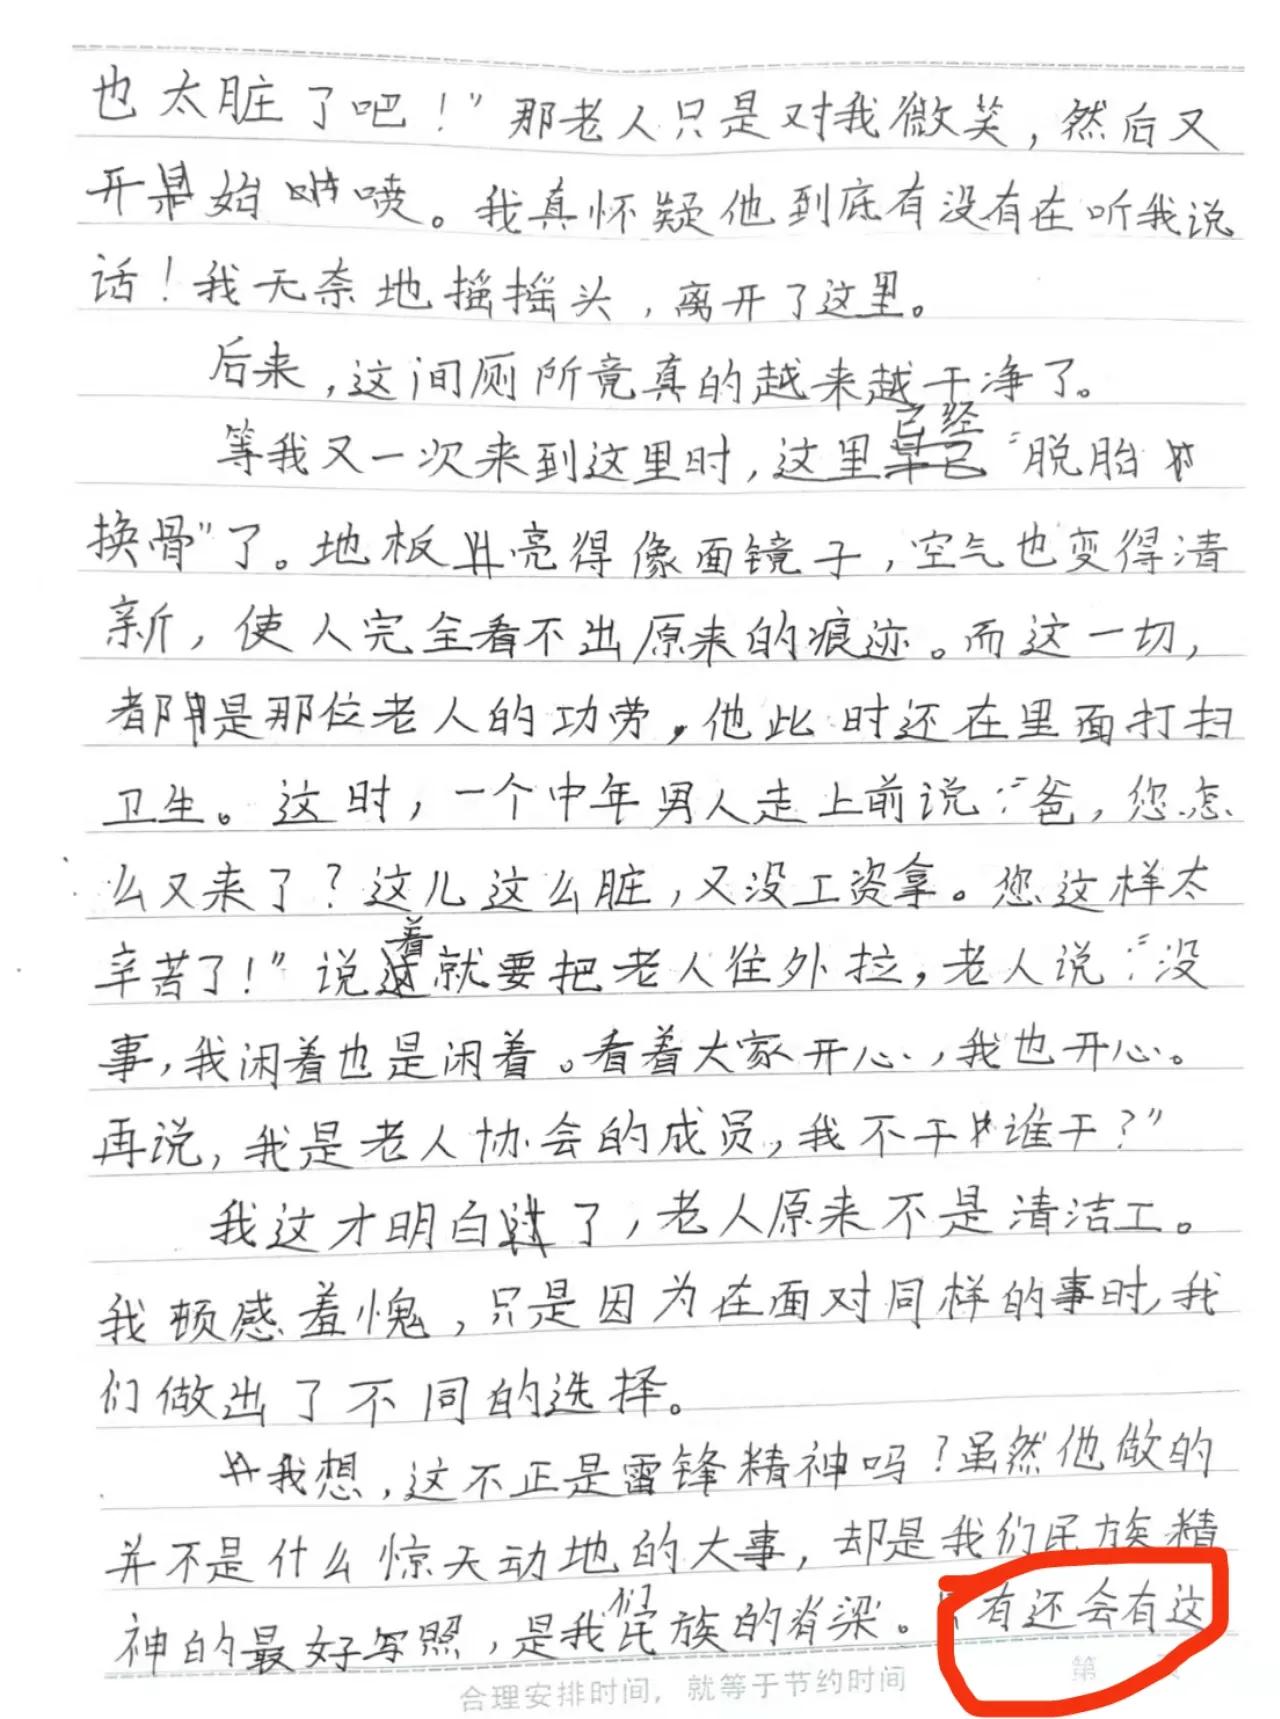 也太脏了吧！”那老人只是对我微笑，然后又
开始喷。我真怀疑他到底有没有在听我说
话！我无奈地摇摇头，离开了这里。
后来，这间厕所竟真的越来越干净了。
等我又一次来到这里时，这里已经“脱胎
换骨”了。地板亮得像面镜子，空气也变得清
新，使人完全看不出原来的痕迹。而这一切，
都是那位老人的功劳，他此时还在里面打扫
卫生。这时，一个中年男人走上前说：“爸，您怎
么又来了？这儿这么脏，又没工资拿。您这样太
辛苦了！”说着就要把老人往外拉，老人说：“没
事，我闲着也是闲着。看着大家开心，我也开心。
再说，我是老人协会的成员，我不干谁干？”
我这才明白了，老人原来不是清洁工。
我顿感羞愧，只是因为在面对同样的事时，我
们做出了不同的选择。
我想，这不正是雷锋精神吗？虽然他做的
并不是什么惊天动地的大事，却是我们民族精
神的最好写照，是我们民族的脊梁。有还会有这
合理安排时间，就等于节约时间
第